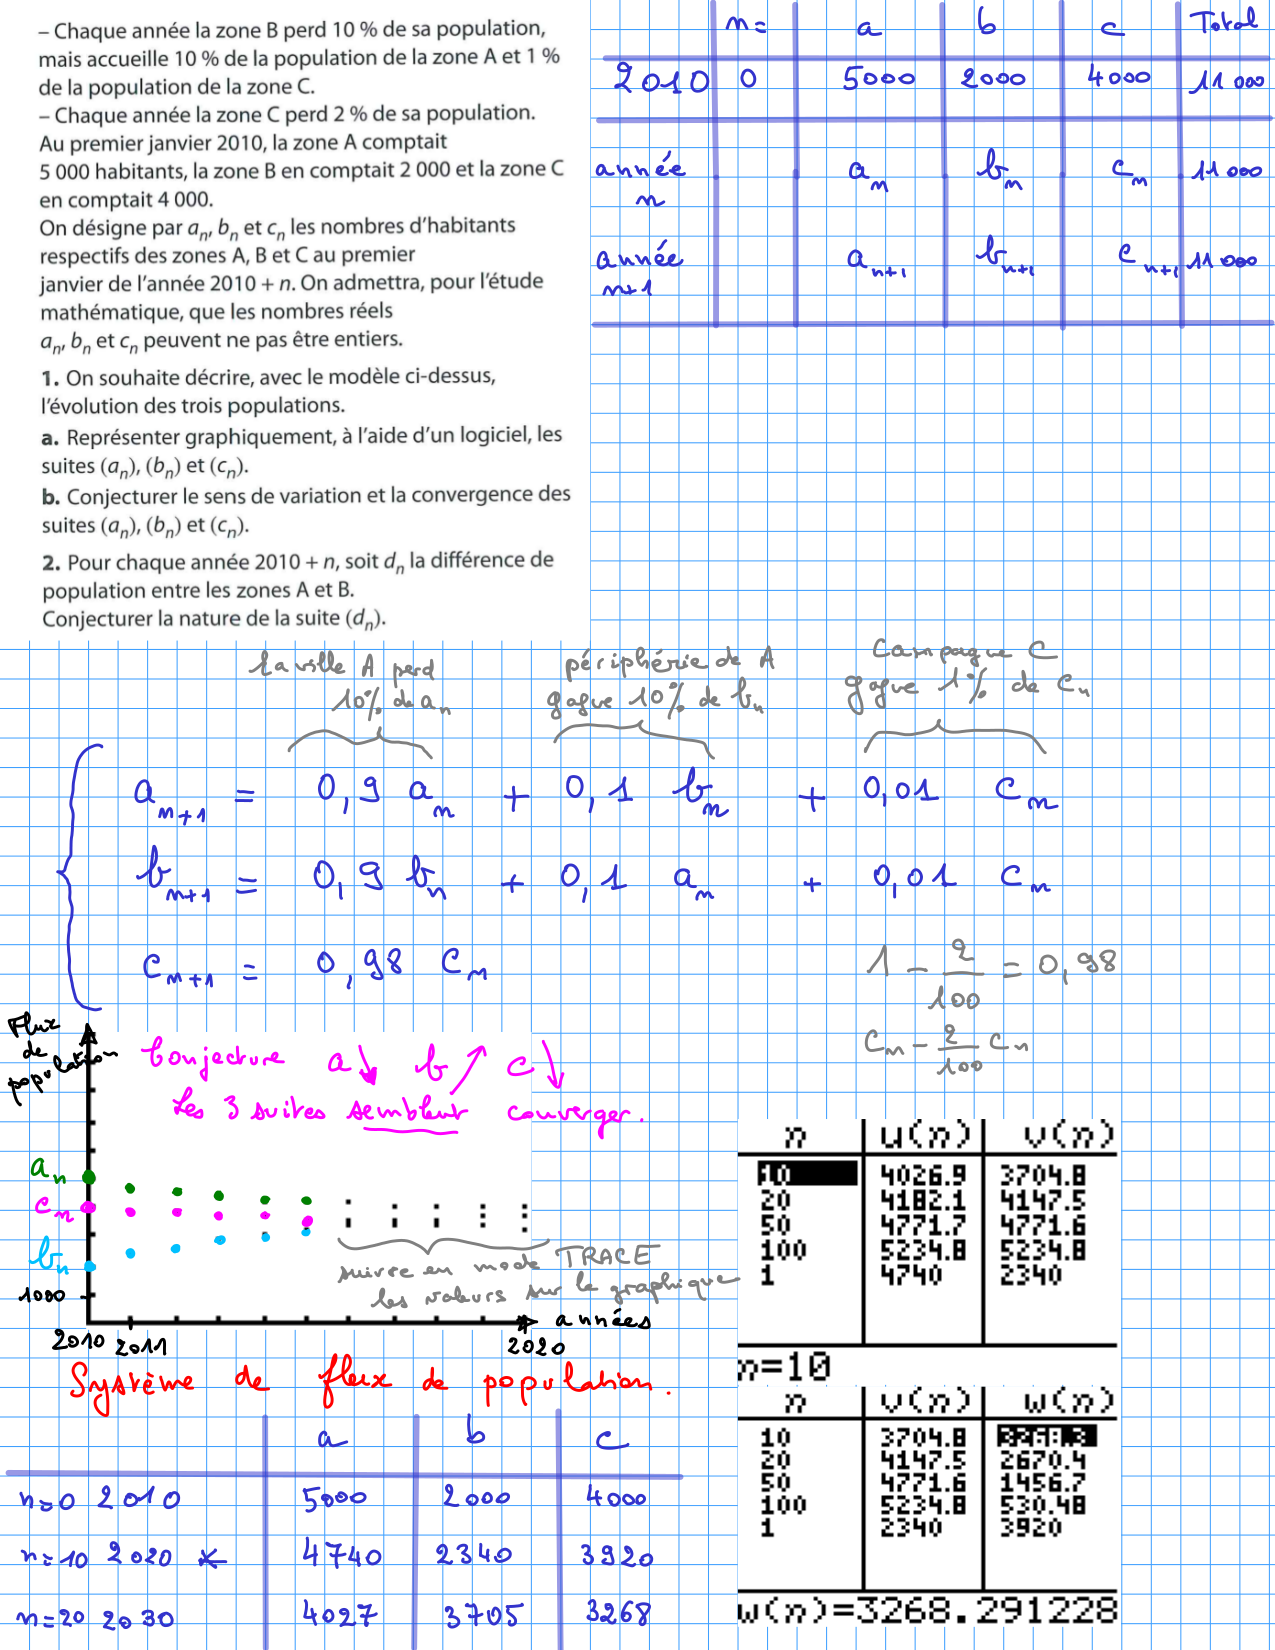 – Chaque année la zone B perd 10 % de sa population,
mais accueille 10 % de la population de la zone A et 1 %
de la population de la zone C.
– Chaque année la zone C perd 2 % de sa population.
Au premier janvier 2010, la zone A comptait
5 000 habitants, la zone B en comptait 2 000 et la zone C
en comptait 4 000.
On désigne par aₙ, bₙ et cₙ les nombres d’habitants
respectifs des zones A, B et C au premier
janvier de l’année 2010 + n. On admettra, pour l’étude
mathématique, que les nombres réels
aₙ, bₙ et cₙ peuvent ne pas être entiers.
1. On souhaite décrire, avec le modèle ci-dessus,
l’évolution des trois populations.
a. Représenter graphiquement, à l’aide d’un logiciel, les
suites (aₙ), (bₙ) et (cₙ).
b. Conjecturer le sens de variation et la convergence des
suites (aₙ), (bₙ) et (cₙ).
2. Pour chaque année 2010 + n, soit dₙ la différence de
population entre les zones A et B.
Conjecturer la nature de la suite (dₙ).
n= a b c Total
2010 0 5000 2000 4000 11 000
année n aₙ bₙ cₙ 11 000
année n+1 aₙ₊₁ bₙ₊₁ cₙ₊₁ 11 000
la ville A perd
10% de aₙ
périphérie de A
gagne 10% de bₙ
Campagne C
gagne 1% de cₙ
aₙ₊₁ = 0,9 aₙ + 0,1 bₙ + 0,01 cₙ
bₙ₊₁ = 0,9 bₙ + 0,1 aₙ + 0,01 cₙ
cₙ₊₁ = 0,98 cₙ
1 - 2/100 = 0,98
cₙ - 2/100 cₙ
Flux
de
population
Conjecture a ↘ b ↗ c ↘
Les 3 suites semblent converger.
aₙ
cₙ
bₙ
1000
suivre en mode TRACE
les valeurs sur le graphique
années
2010 2011 2020
Système de flux de population.
n u(n) v(n)
10 4026.9 3704.8
20 4182.1 4147.5
50 4771.7 4771.6
100 5234.8 5234.8
1 4740 2340
n=10
n v(n) w(n)
10 3704.8 3268.3
20 4147.5 2670.4
50 4771.6 1456.7
100 5234.8 530.48
1 2340 3920
w(n)=3268.291228
a b c
n=0 2010 5000 2000 4000
n=10 2020 * 4740 2340 3920
n=20 2030 4027 3705 3268